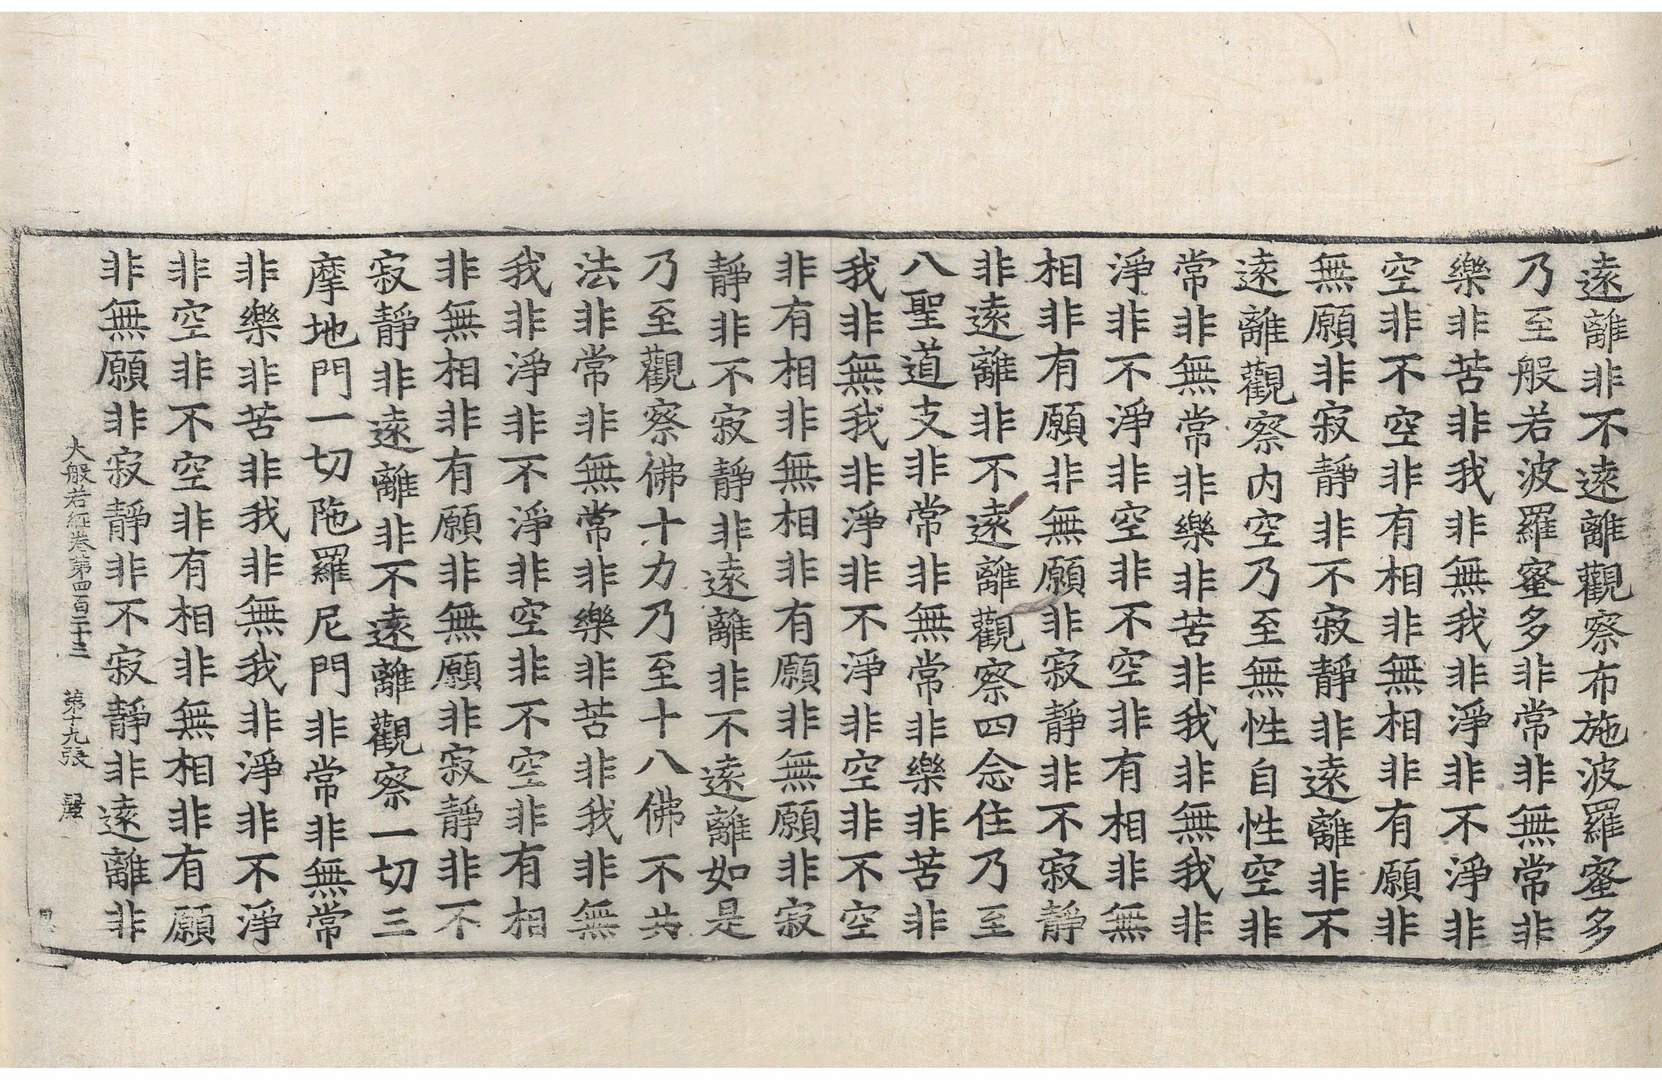 遠離非不遠離觀察布施波羅蜜多
乃至般若波羅蜜多非常非無常非
樂非苦非我非無我非淨非不淨非
空非不空非有相非無相非有願非
無願非寂靜非不寂靜非遠離非不
遠離觀察内空乃至無性自性空非
常非無常非樂非苦非我非無我非
淨非不淨非空非不空非有相非無
相非有願非無願非寂靜非不寂靜
非遠離非不遠離觀察四念住乃至
八聖道支非常非無常非樂非苦非
我非無我非淨非不淨非空非不空
非有相非無相非有願非無願非寂
靜非不寂靜非遠離非不遠離如是
乃至觀察佛十力乃至十八佛不共
法非常非無常非樂非苦非我非無
我非淨非不淨非空非不空非有相
非無相非有願非無願非寂靜非不
寂靜非遠離非不遠離觀察一切三
摩地門一切陁羅尼門非常非無常
非樂非苦非我非無我非淨非不淨
非空非不空非有相非無相非有願
非無願非寂靜非不寂靜非遠離非
大般若經卷第四百二十三 第十九張